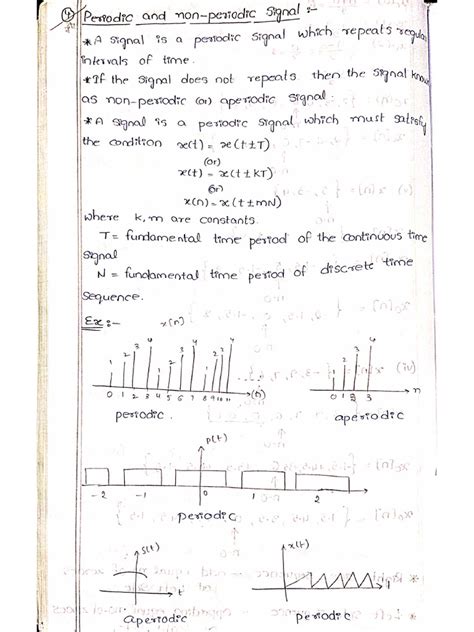 4) Periodic and non-periodic signal :-
* A signal is a periodic signal which repeats regular
intervals of time.
* If the signal does not repeats then the signal know
as non-periodic (or) aperiodic signal.
* A signal is a periodic signal which must satisfy
the condition x(t) = x(t±T)
(or)
x(t) = x(t±kT)
(or)
x(n) = x(t±mN)
where k,m are constants.
T = fundamental time period of the continuous time
signal
N = fundamental time period of discrete time
sequence.
Ex :-
x(n)
1 2 3 4 1 2 3 4 1 2 3 4
0 1 2 3 4 5 6 7 8 9 10 11 (n)
periodic.
1 2 3 4
0 1 2 3 n
aperiodic
p(t)
-2 -1 0 1 2
periodic
s(t)
t
aperiodic
x(t)
t
periodic